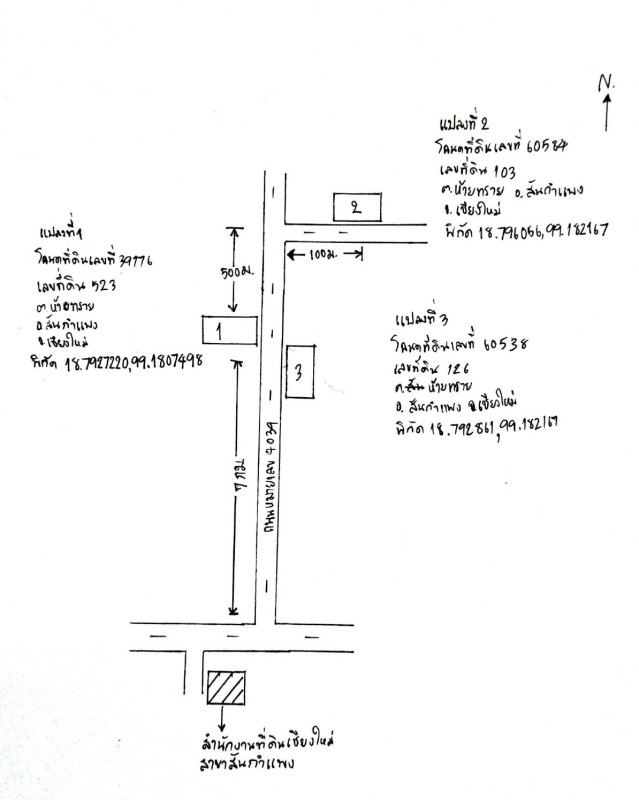 N.
แปลงที่ 2
โฉนดที่ดินเลขที่ 60584
เลขที่ดิน 103
ต.ห้วยทราย อ.สันกำแพง
จ.เชียงใหม่
พิกัด 18.796056,99.182167
2
แปลงที่1
โฉนดที่ดินเลขที่ 39776
เลขที่ดิน 523
ต.ห้วยทราย
อ.สันกำแพง
จ.เชียงใหม่
พิกัด 18.7927220,99.1807498
500ม.
100ม.
1
3
แปลงที่ 3
โฉนดที่ดินเลขที่ 60538
เลขที่ดิน 126
ต.ห้วยทราย
อ.สันกำแพง จ.เชียงใหม่
พิกัด 18.792861,99.182167
7 กม
ถนนหมายเลข 4039
สำนักงานที่ดินเชียงใหม่
สาขาสันกำแพง